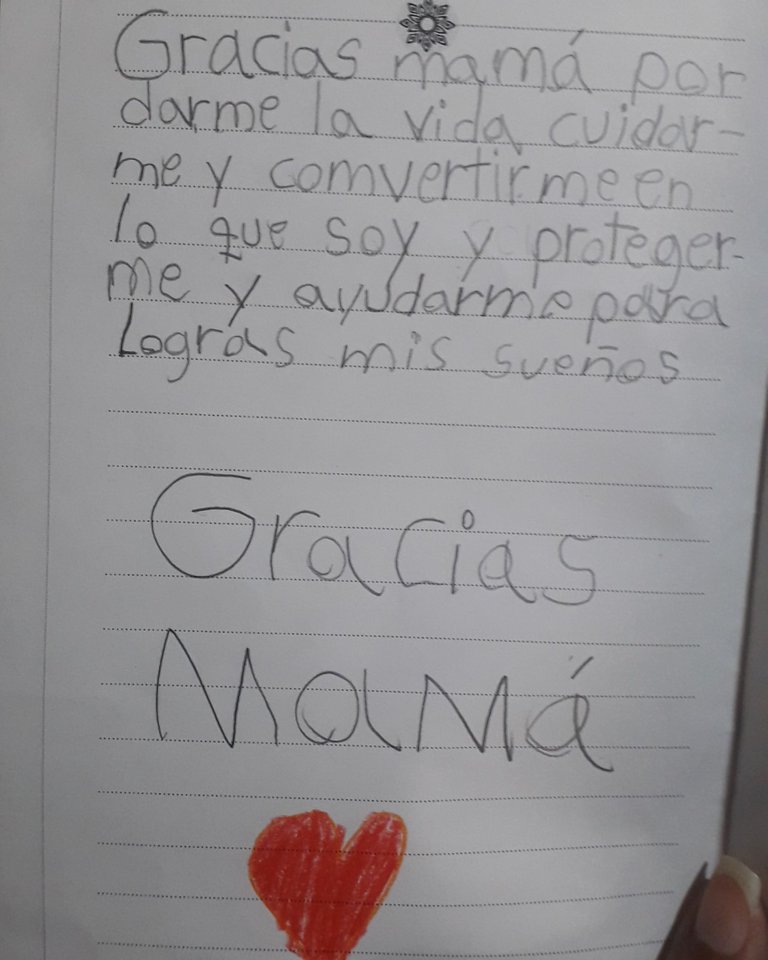 Gracias mamá por
darme la vida cuidar-
me y comvertirme en
lo que soy y proteger-
me y ayudarme para
Logras mis sueños
Gracias
Mamá